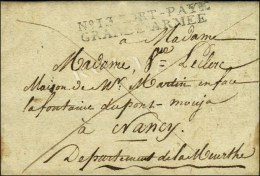 N° 13 PORT-PAYÉ
GRANDE ARMÉE
a Madame
Madame, Vve Leclerc
Maison de Mr. Martin en face
la fontaine du pont-mouja
a Nancy.
Departement de la Meurthe